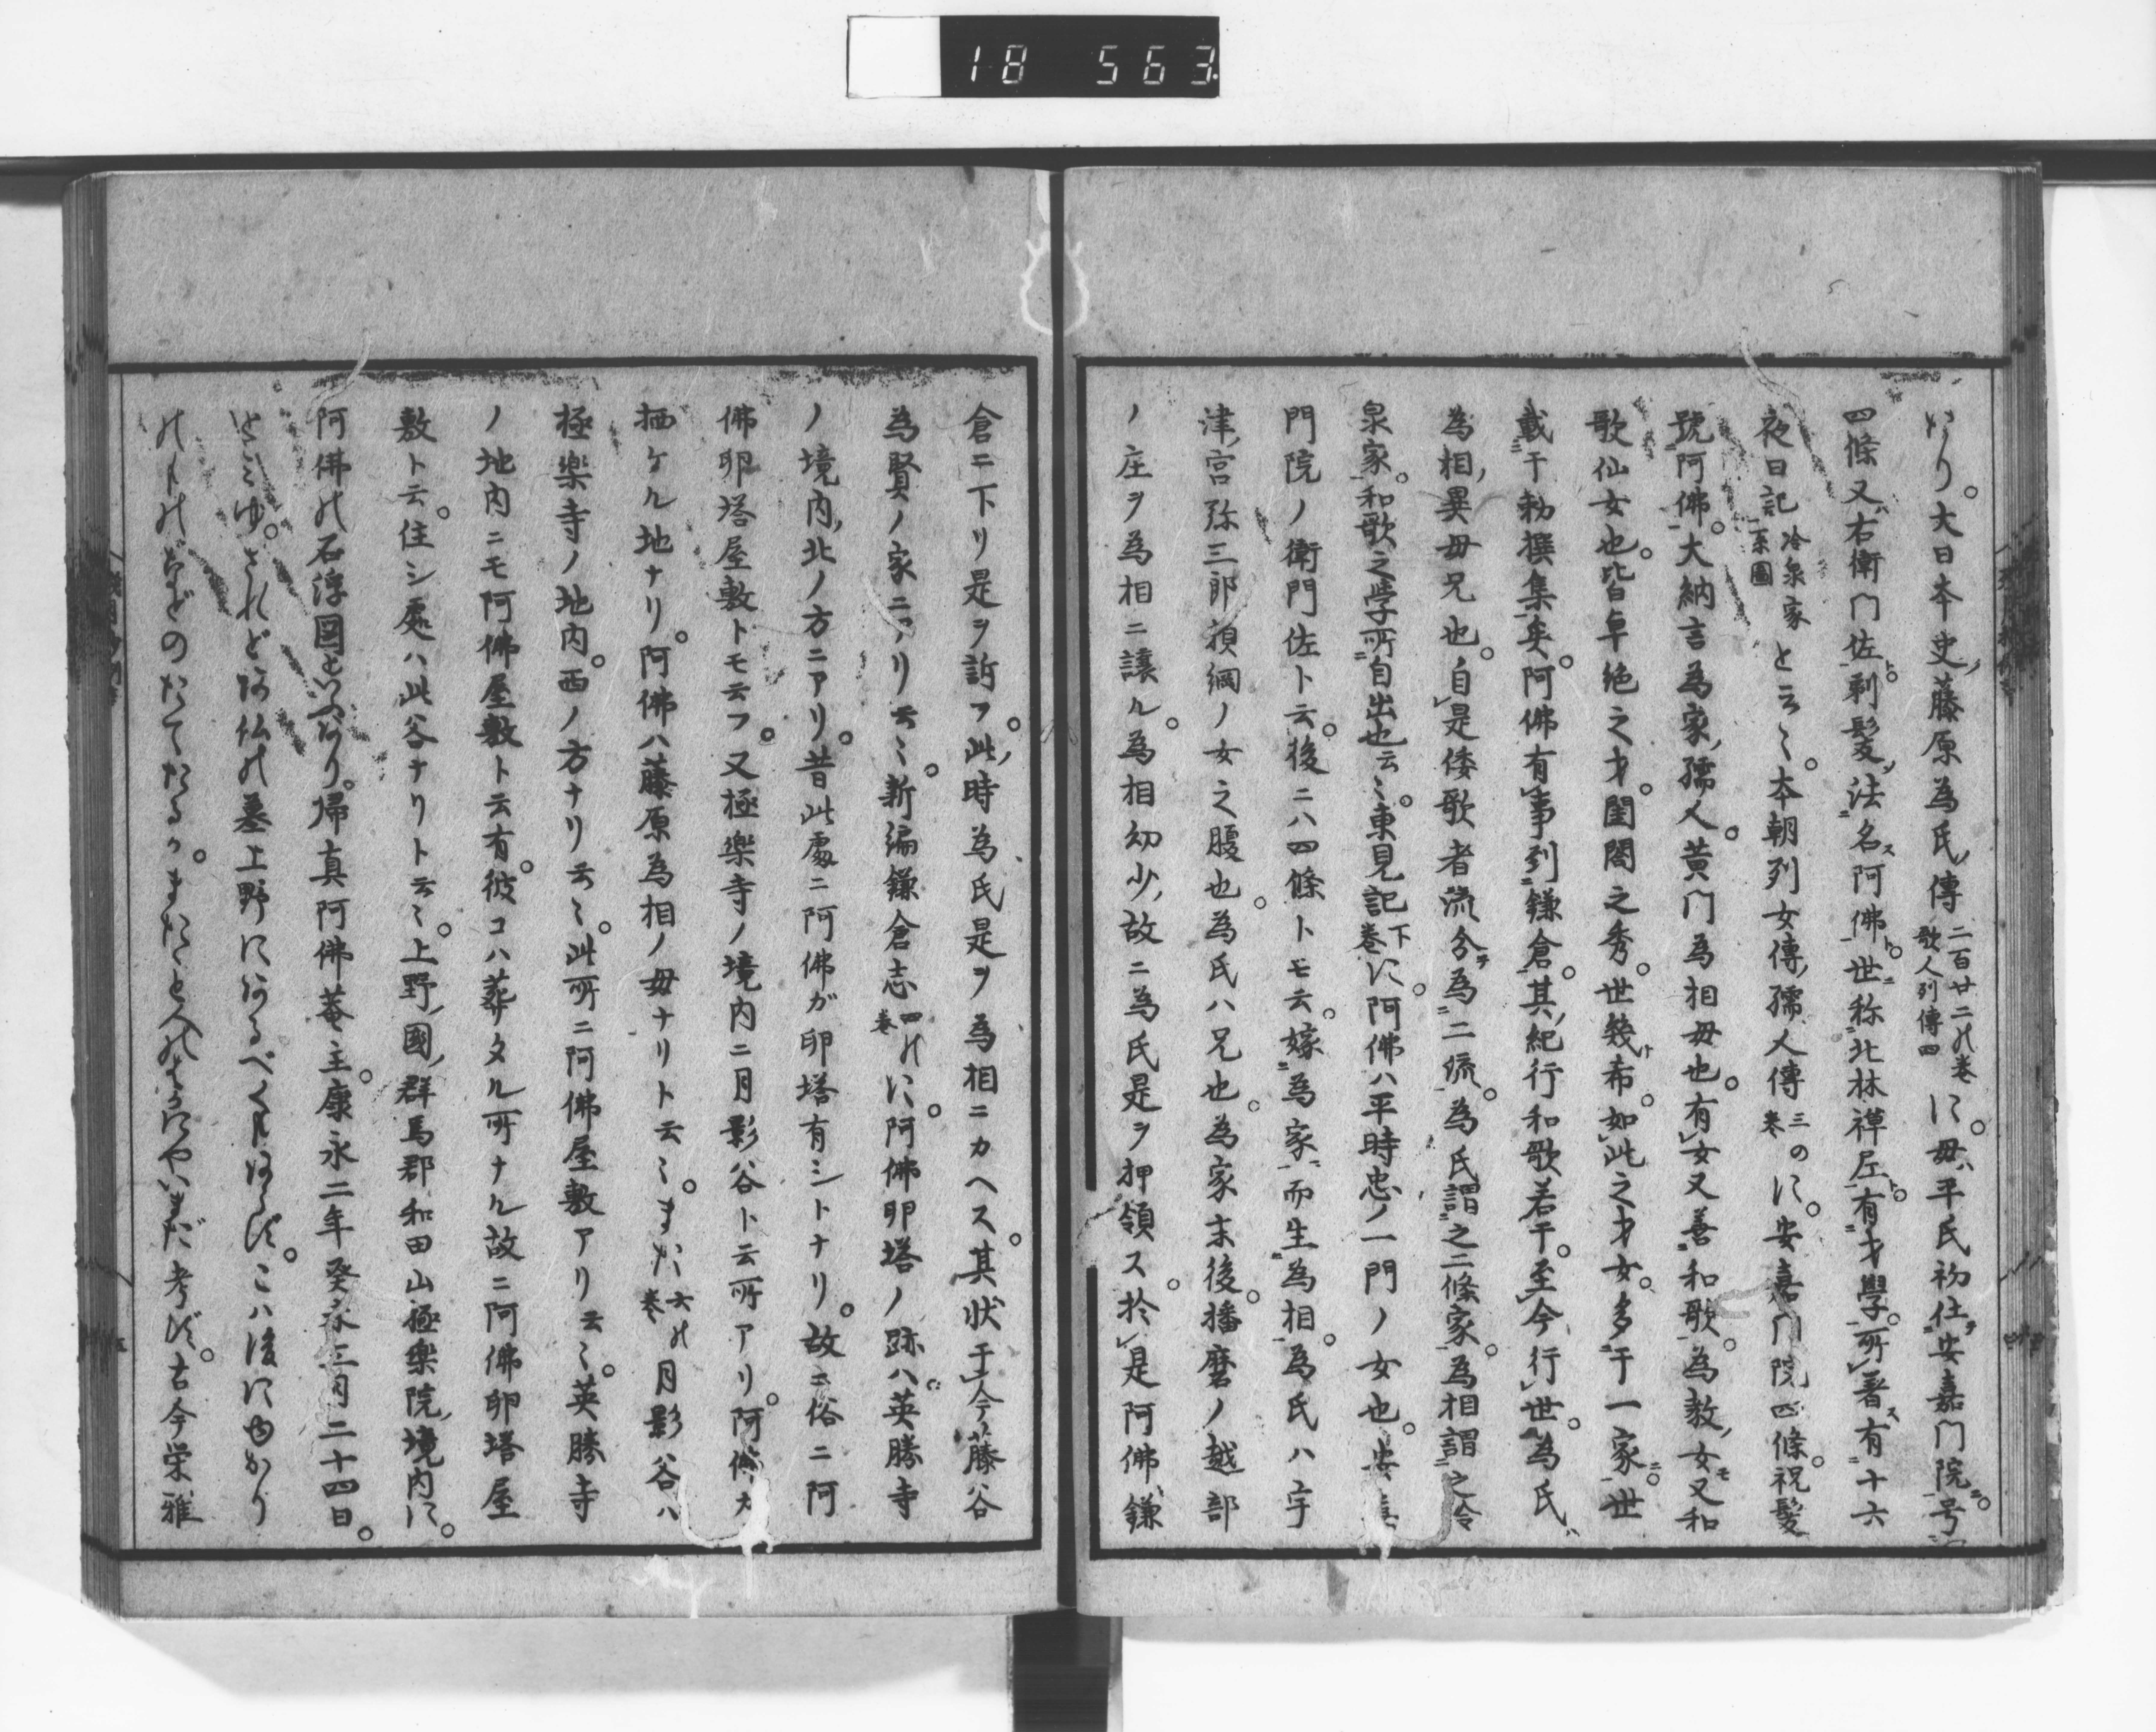 18 563
り。大日本史、藤原為氏、傳 二百廿二の巻 歌人列傳四 に。母ハ平氏初仕ヲ安嘉門院ニ。号
四條又ハ右衛門佐ト。剃髪、法名ス阿佛ト。世ニ称北林禅尼ト。有才學。所著ス有十六
夜日記 冷泉家系圖 と云々。本朝列女傳、孺人傳 三巻 のに。安嘉門院四條。祝髪
號阿佛。大納言為家、孺人。黄門為相母也。有女又善和歌。為教、女モ又和
歌仙女也。皆卓絶之才。閨閤之秀。世幾ト希。如此之才女。多于一家ニ。世
載于勅撰集矣。阿佛有事到鎌倉。其、紀行和歌若干。至今行世。為氏、
為相、異母兄也。自是倭歌者流分テ為二流。為氏謂之二條家。為相謂之冷
泉家。和歌之學所自出也云々。東見記 下巻 に。阿佛ハ平時忠ノ一門ノ女也。安嘉
門院ノ衛門佐ト云。後ニハ四條トモ云。嫁為家而生為相。為氏ハ宇
津、宮弥三郎頼綱ノ女之腹也。為氏ハ兄也。為家末後。播磨ノ越部
ノ庄ヲ為相ニ譲ル。為相幼少、故ニ為氏是ヲ押領ス。於是阿佛、鎌
倉ニ下リ是ヲ訴フ。此、時為氏是ヲ為相ニカヘス。其状于今藤谷
為賢ノ家ニアリ云々。新編鎌倉志 四巻 のに。阿佛卵塔ノ跡ハ。英勝寺
ノ境内、北ノ方ニアリ。昔此處ニ阿佛ガ卵塔有シトナリ。故ニ俗ニ阿
佛卵塔屋敷トモ云フ。又極楽寺ノ境内ニ月影谷ト云所アリ。阿佛ガ
栖ケル地ナリ。阿佛ハ藤原為相ノ母ナリト云々。また 六巻 の月影谷ハ
極楽寺ノ地内。西ノ方ナリ云々。此所ニ阿佛屋敷アリ云々。英勝寺
ノ地内ニモ阿佛屋敷ト云有。彼コハ葬タル所ナル故ニ阿佛卵塔屋
敷ト云。住シ處ハ此谷ナリト云々。上野、國、群馬郡和田山極楽院、境内に。
阿佛の石浮圖といふあり。帰真阿佛菴主。康永二年癸未三月二十四日。
とみゆ。されど阿仏の墓上野にあるべくもあらず。こハ後にゆかり
の人のなどのたてたるか。またこと人のなるにやいまだ考ず。古今栄雅